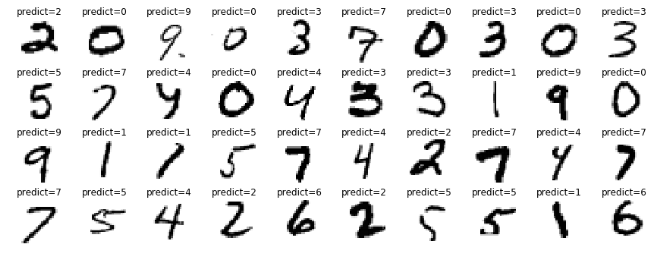 predict=2 predict=0 predict=9 predict=0 predict=3 predict=7 predict=0 predict=3 predict=0 predict=3
2 0 9. 0 3 7 0 3 0 3
predict=5 predict=7 predict=4 predict=0 predict=4 predict=3 predict=3 predict=1 predict=9 predict=0
5 7 4 0 4 3 3 1 9 0
predict=9 predict=1 predict=1 predict=5 predict=7 predict=4 predict=2 predict=7 predict=4 predict=7
9 1 1 5 7 4 2 7 4 7
predict=7 predict=5 predict=4 predict=2 predict=6 predict=2 predict=5 predict=5 predict=1 predict=6
7 5 4 2 6 2 5 5 1 6